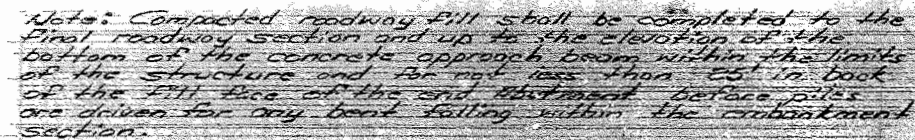 Note: Compacted roadway fill shall be completed to the
final roadway section and up to the elevation of the
bottom of the concrete approach beam within the limits
of the structure and for not less than 25' in back
of the fill face of the end abutment before piles
are driven for any bent falling within the embankment
section.